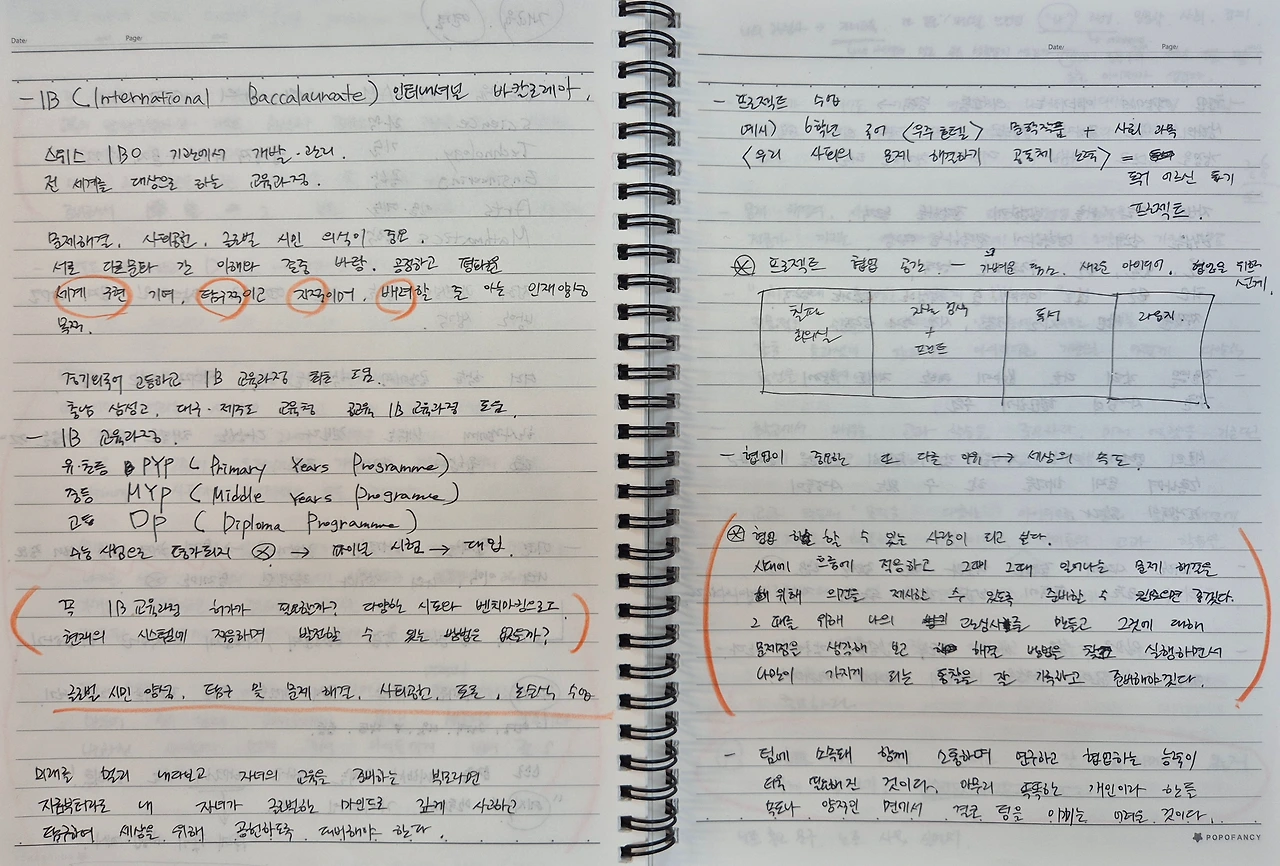 Date/ Page/
- IB (International Baccalaureate) 인터내셔널 바칼로레아,
스위스 IBO 기관에서 개발·관리.
전 세계를 대상으로 하는 교육과정.
문제해결, 사회공헌, 글로벌 시민 의식이 중요.
서로 다른문화 간 이해와 존중 바탕, 공정하고 평화로운
세계 구현 기여, 탐구적이고 지적이며, 배려할 줄 아는 인재양성
목적.
경기외국어 고등학교 IB 교육과정 최초 도입.
충남 삼성고, 대구·제주도 교육청 공교육 IB 교육과정 도입.
- IB 교육과정.
유·초등 PYP (Primary Years Programme)
중등 MYP (Middle Years Programme)
고등 DP (Diploma Programme)
수능 시험으로 평가되지 ⓧ → 파이널 시험 → 대입.
꼭 IB 교육과정 허가가 필요한가? 다양한 시도와 벤치마킹으로도
현재의 시스템에 적응하며 발전할 수 있는 방법은 없을까?
글로벌 시민 양성, 탐구 및 문제 해결, 사회공헌, 토론, 논술식 수업
미래를 멀리 내다보고 자녀의 교육을 준비하는 부모라면
지금부터라도 내 자녀가 글로벌한 마인드로 깊게 사고하고
탐구하여 세상을 위해 공헌하도록 대비해야 한다.
Date/ Page/
- 프로젝트 수업
예시) 6학년 국어 <우주 호텔> 문학작품 + 사회 과목
<우리 사회의 문제 해결하기 공동체 노력> =
독거 어르신 돕기
프로젝트.
ⓧ 프로젝트 협업 공간 - 가벼운 새로운 아이디어, 협업을 위한
설계.
칠판 자료 검색 독서 라운지.
회의실 +
프린트
- 협업이 중요한 또 다른 이유 → 세상의 속도.
ⓧ 협업 할 수 있는 사람이 되고 싶다.
시대에 흐름에 적응하고 그때 그때 일어나는 문제 해결을
위해 의견을 제시할 수 있도록 준비할 수 있으면 좋겠다.
그 때를 위해 나의 관심사를 만들고 그것에 대해
문제점을 생각해 보고 해결 방법을 찾고 실행하면서
나만이 가지게 되는 통찰을 잘 기록하고 준비해야겠다.
- 팀에 소속돼 함께 소통하며 연구하고 협업하는 능력이
더욱 필요해진 것이다. 아무리 똑똑한 개인이라 한들
속도나 양적인 면에서 결코 팀을 이기는 어려울 것이다.
POPOFANCY